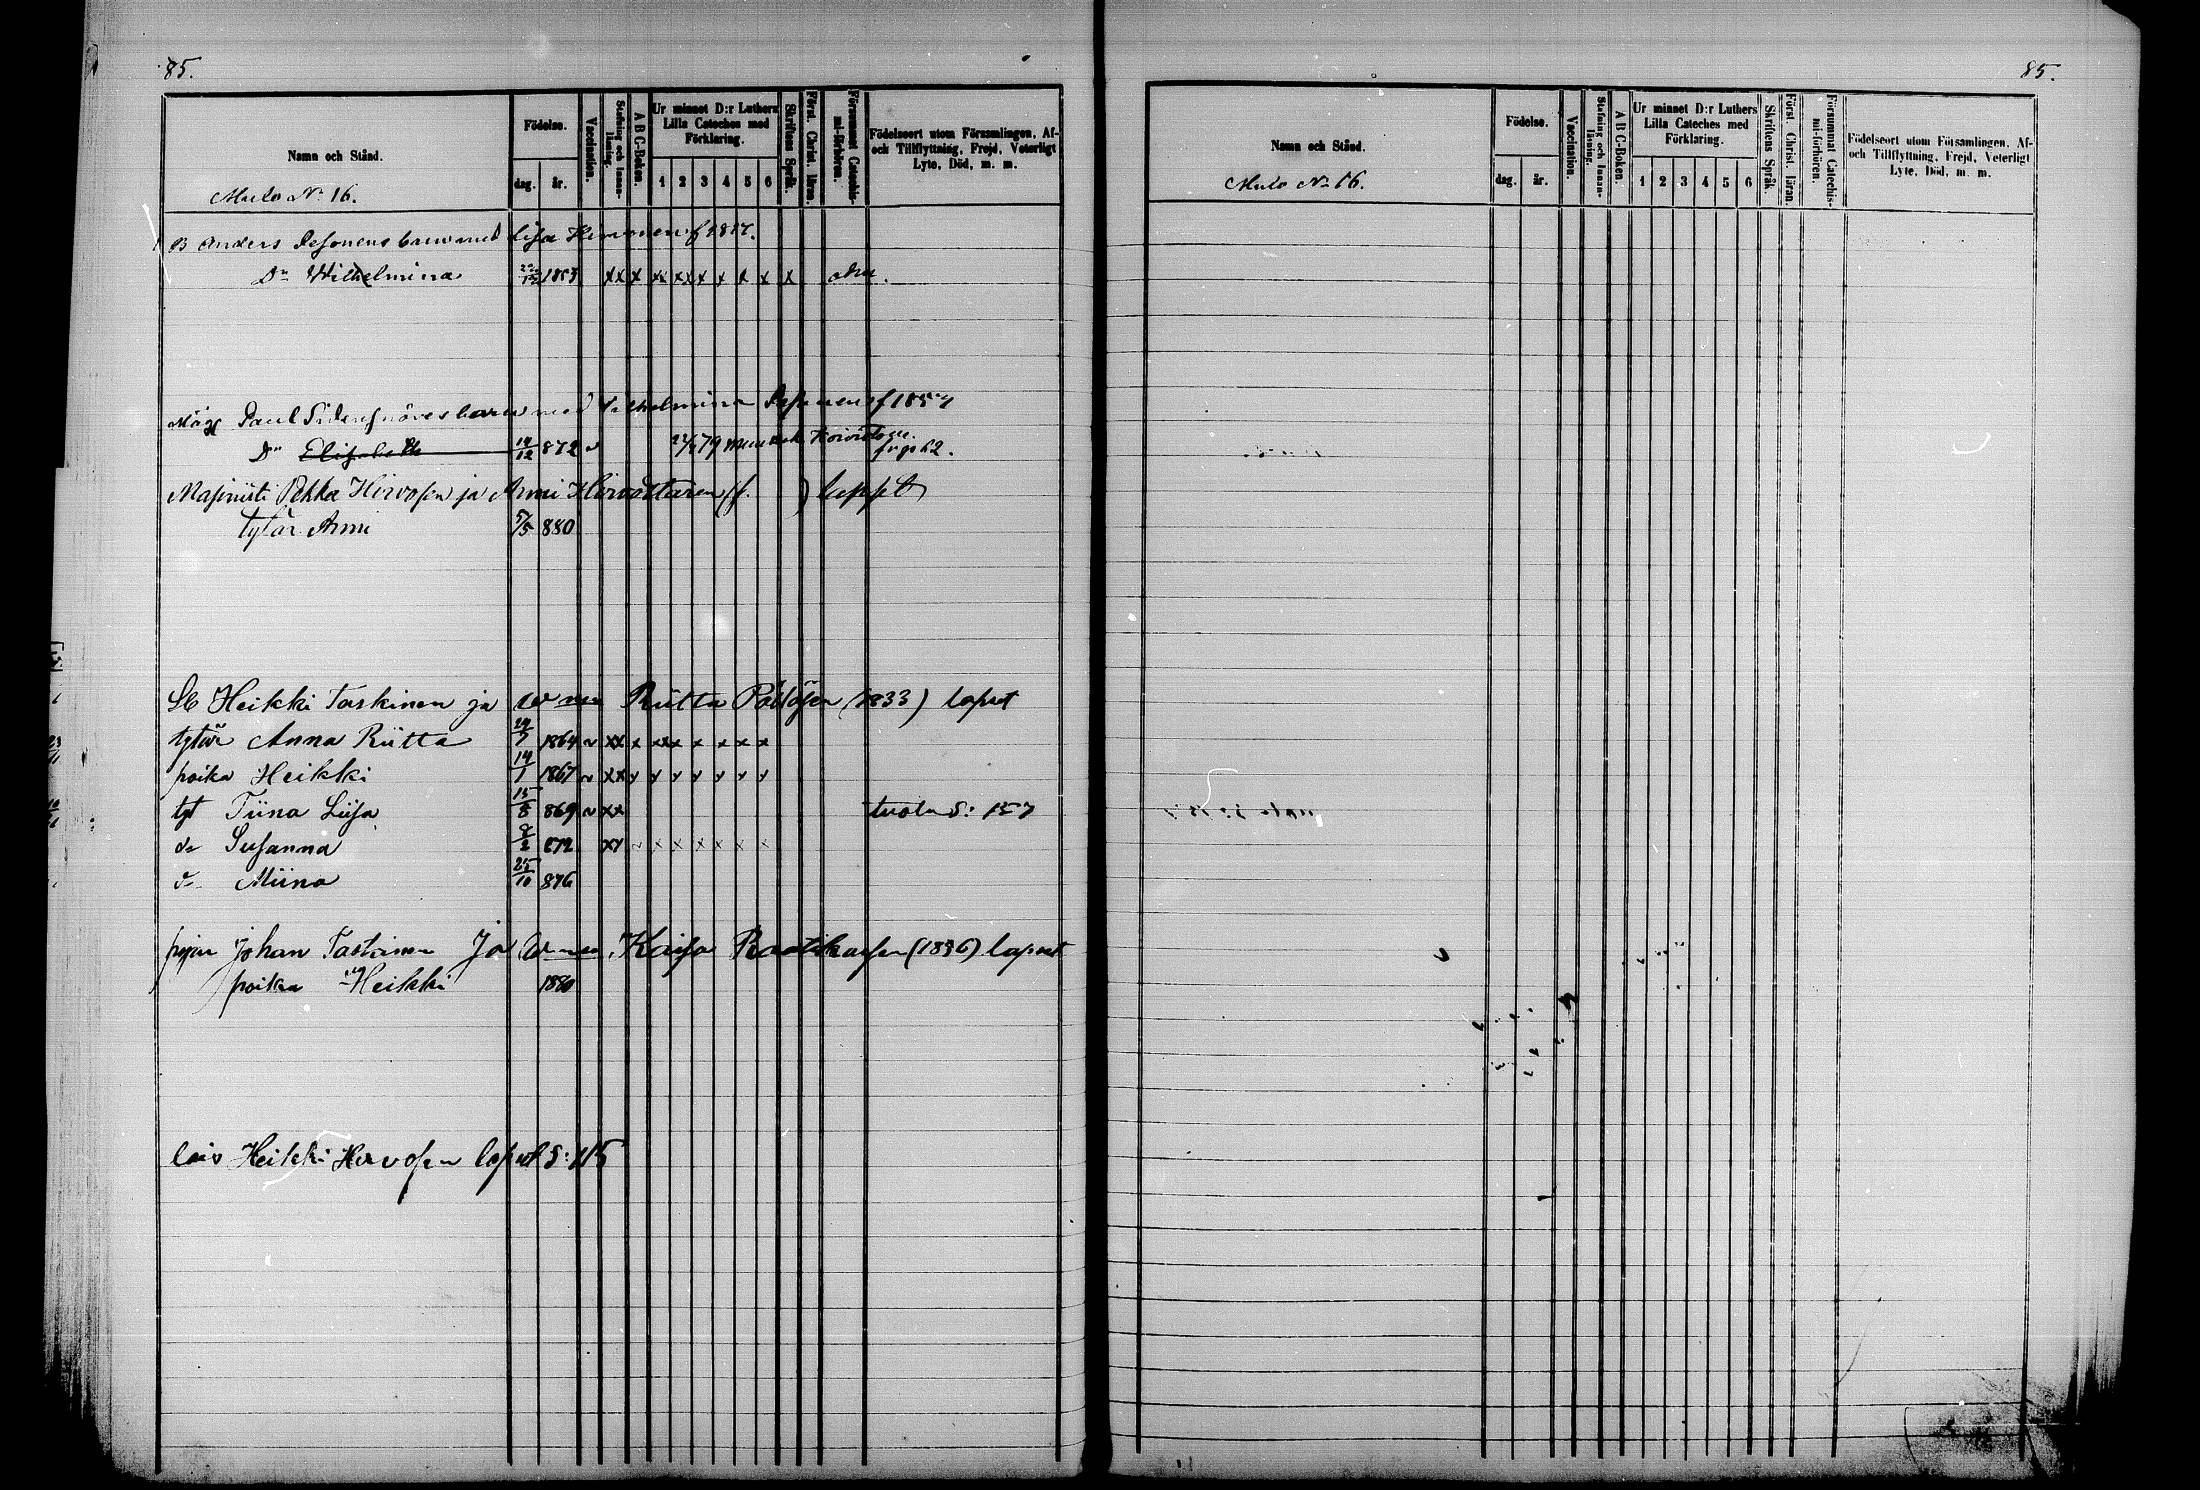 85.
Namn och Stånd.
Mulo No 16.
Födelse.
dag. år.
Vaccination.
Stafning och Innan-läsning.
A B C-Boken.
Ur minnet D:r Luthers Lilla Cateches med Förklaring.
1 2 3 4 5 6
Skriftens Språk.
Först. Christ. läran.
Försummat Catechis-mi-förhören.
Födelseort utom Församlingen, Af- och Tillflyttning, Frejd, Veterligt Lyte, Död, m. m.
B Anders barn med Lisa Hirvonen f 1817.
Dr Wilhelmina 1853 xx x xx xx x x x x x
Paul barn med Vilhelmina
Dr Elisabeth 14/12 872
Pekka Hirvosen ja Anni Hirvottaren (f. ) lapset
tytär Anni 5/5 880
Heikki Taskinen ja Riitta Pöllösen (1833) lapset
tytär Anna Riitta 1864 ~ xx x xxx x x x x
poika Heikki 14/1 1867 ~ xx x x x x x x x
tyt Tiina Liisa 15/8 869 ~ xx S: 157
do Susanna 872 xx ~ x x x x x x
do Miina 25/10 876
Johan Ja Kaisa (1836) lapset
poika Heikki 1880
lois Heikki Hirvosen lapset S: 115
85.
Namn och Stånd.
Mulo No 16.
Födelse.
dag. år.
Vaccination.
Stafning och Innan-läsning.
A B C-Boken.
Ur minnet D:r Luthers Lilla Cateches med Förklaring.
1 2 3 4 5 6
Skriftens Språk.
Först. Christ. läran.
Försummat Catechis-mi-förhören.
Födelseort utom Församlingen, Af- och Tillflyttning, Frejd, Veterligt Lyte, Död, m. m.